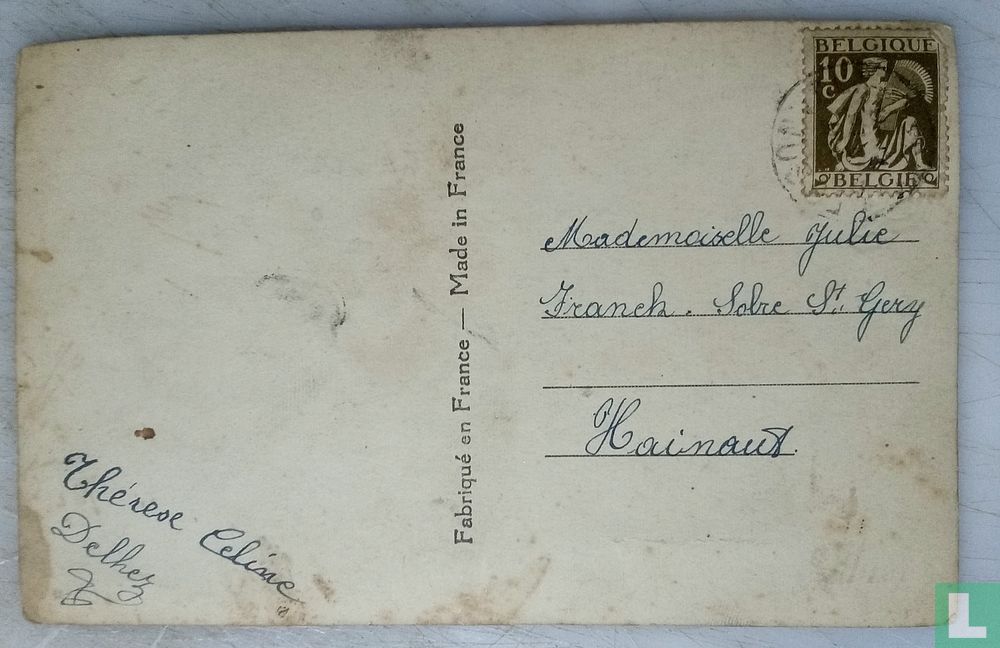 BELGIQUE
10
C
BELGIË
Fabriqué en France — Made in France
Mademoiselle Julie
Franck. Solre St. Gery
Hainaut.
Thérèse Celine
Delhez
L